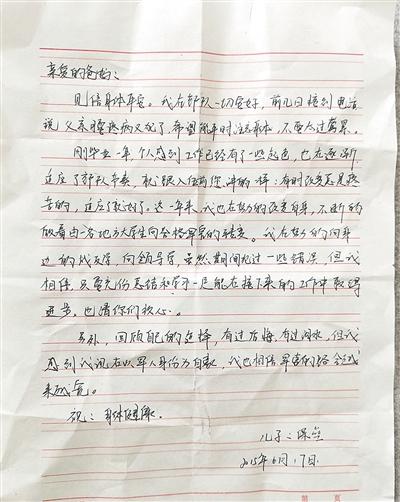 亲爱的爸妈：
见信身体平安。我在部队一切安好，前几日接到电话
说父亲腰疼病又犯了，希望能平时注意身体，不要太过劳累。
刚毕业一年，个人感到工作已经有了一些起色，也在逐渐
适应了部队节奏，就跟入伍前您讲的一样：有时改变总是痛
苦的，适应了就好了。这一年来，我也在努力的改变自身，不断的
做着由一名地方大学生向合格军官的转变。我在努力的向身
边的战友学，向领导学，虽然期间犯过一些错误，但我
相信，只要充分总结和学习一定能在接下来的工作中取得
进步，也请你们放心。
另外，回顾自己的选择，有过后悔，有过泪水，但我
感到我现在以军人身份为自豪，我也相信军营的路会越
来越宽。
祝：身体健康。
儿子：保笙
2015年6月17日